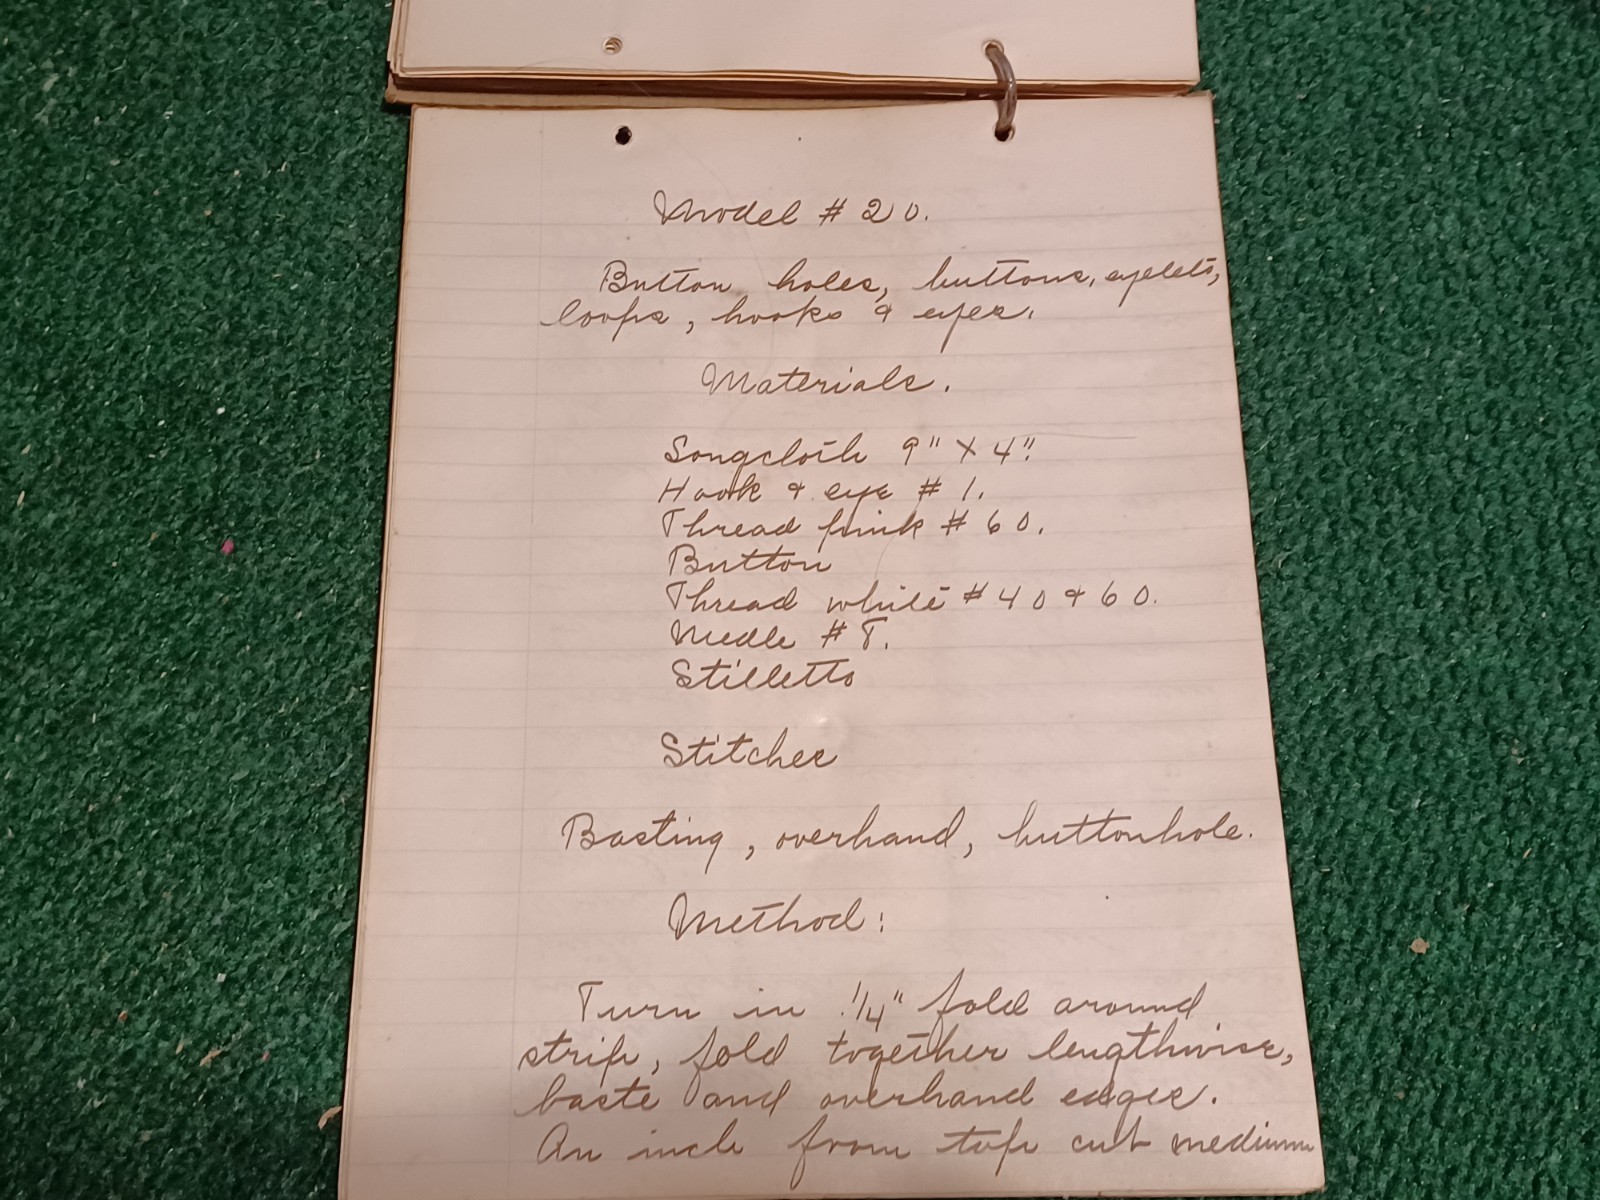 Model # 20.
Button holes, buttons, eyelets,
loops, hooks & eyes.
Materials.
Longcloth 9" X 4".
Hook & eye # 1.
Thread pink # 60.
Button
Thread white # 40 & 60.
Needle # 8.
Stilletto
Stitches
Basting, overhand, buttonhole.
Method:
Turn in 1/4" fold around
strip, fold together lengthwise,
baste and overhand edges.
An inch from top cut medium